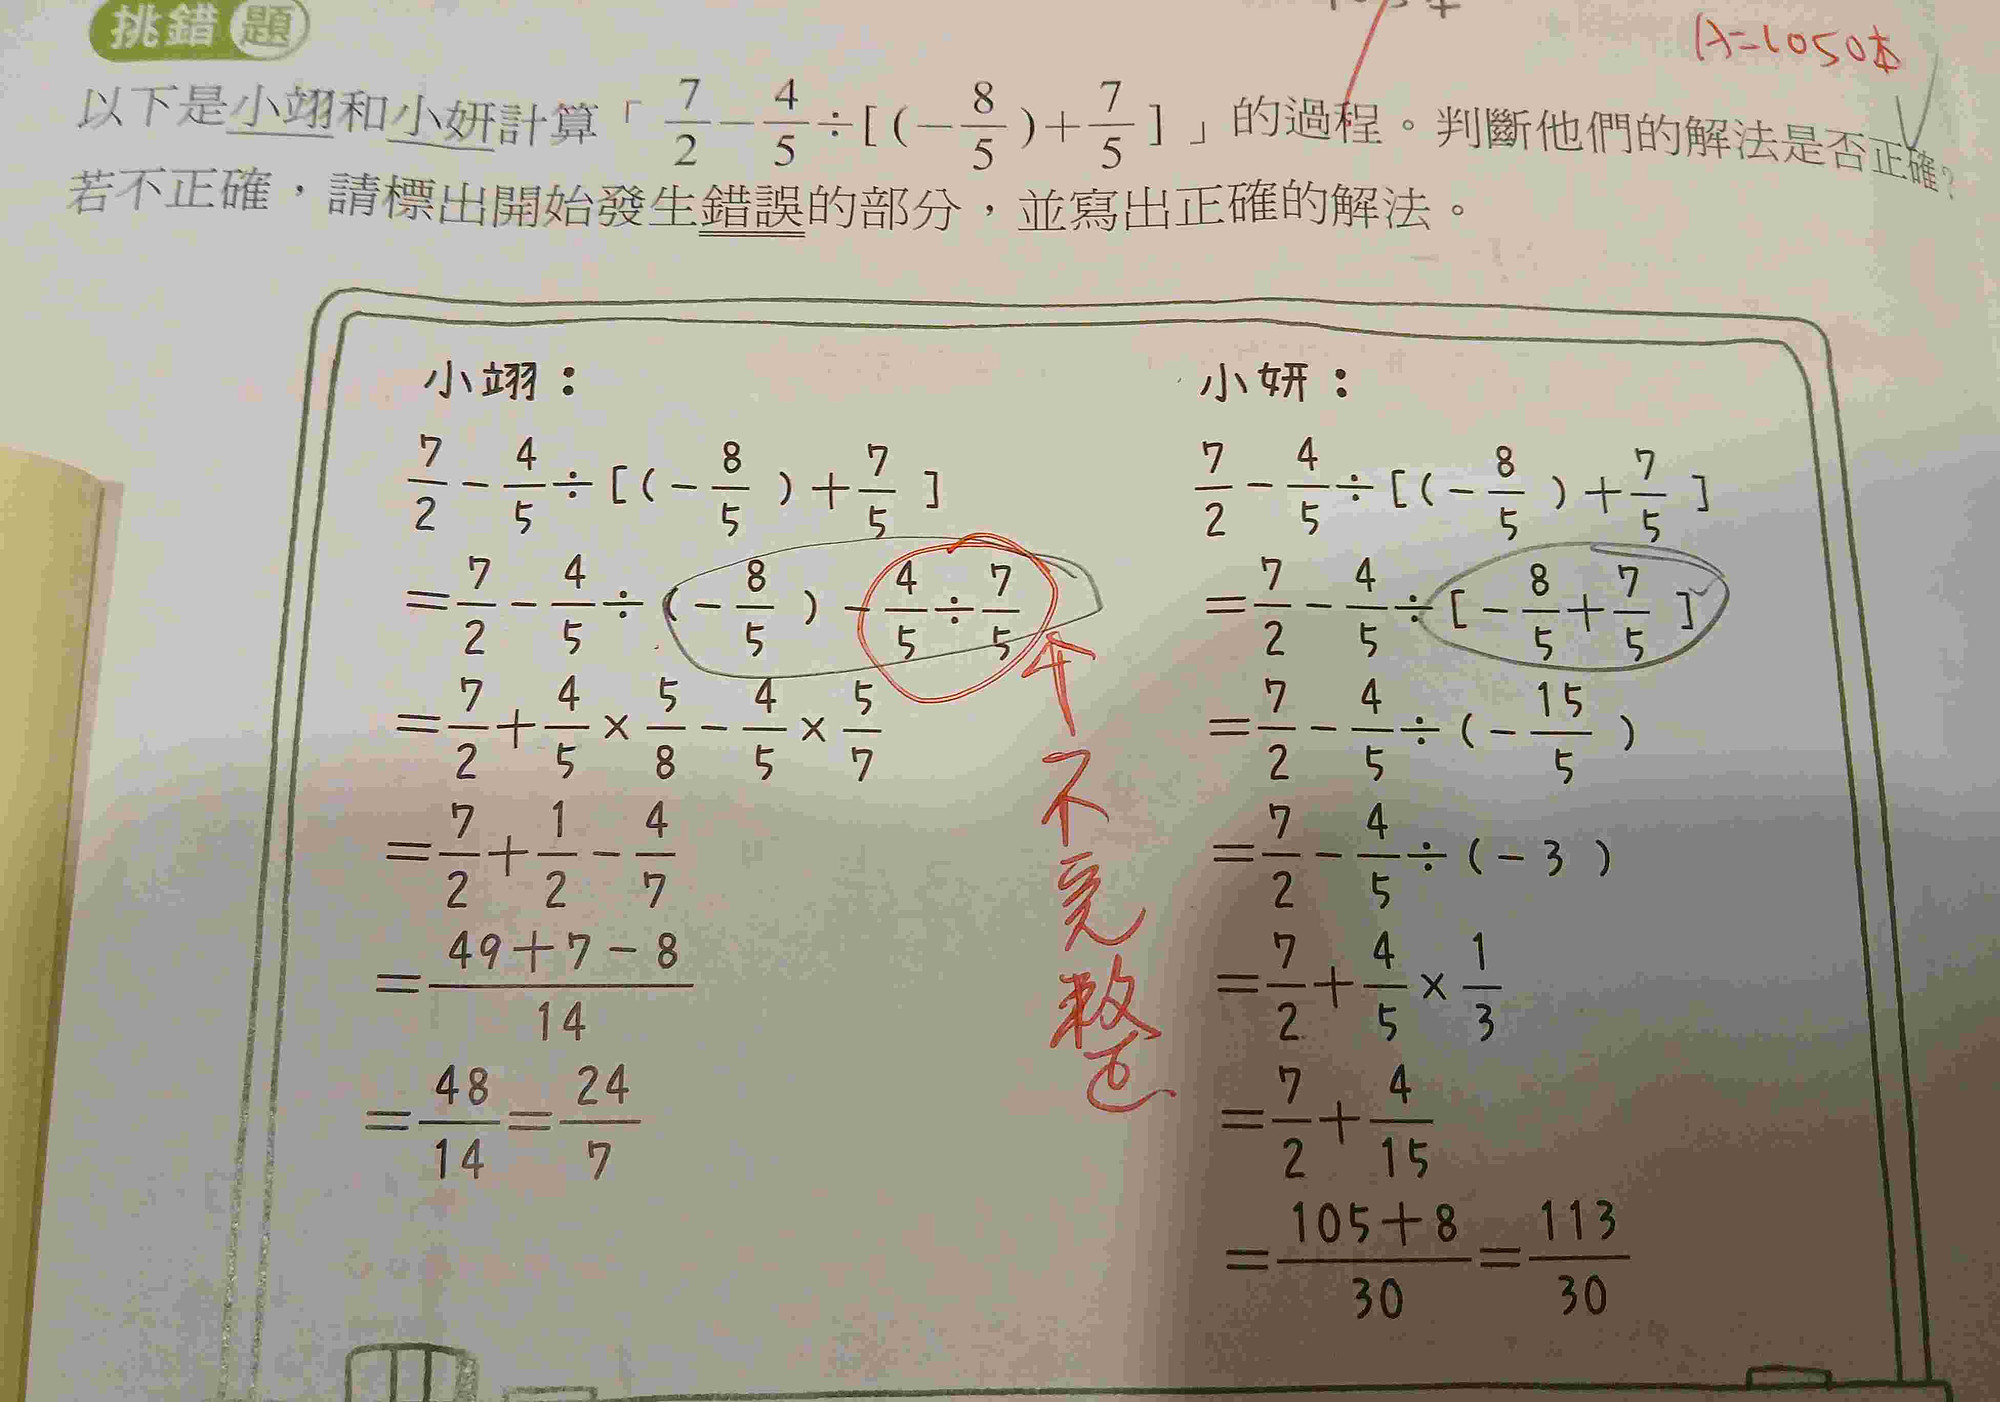 挑錯題
A=1050本
以下是小翊和小妍計算「7/2−4/5÷[(−8/5)+7/5]」的過程。判斷他們的解法是否正確?
若不正確，請標出開始發生錯誤的部分，並寫出正確的解法。
小翊：
7/2−4/5÷[(−8/5)+7/5]
=7/2−4/5÷(−8/5)−4/5÷7/5
=7/2+4/5×5/8−4/5×5/7
=7/2+1/2−4/7
=49+7−8/14
=48/14=24/7
不完整
小妍：
7/2−4/5÷[(−8/5)+7/5]
=7/2−4/5÷[−8/5+7/5]
=7/2−4/5÷(−15/5)
=7/2−4/5÷(−3)
=7/2+4/5×1/3
=7/2+4/15
=105+8/30=113/30